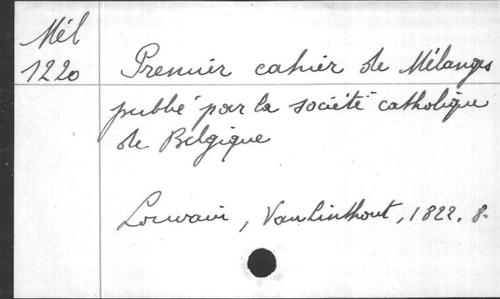 Mél
1220
Premier cahier de Mélanges
publié par la société catholique
de Belgique
Louvain, Vanlinthout, 1822. 8.